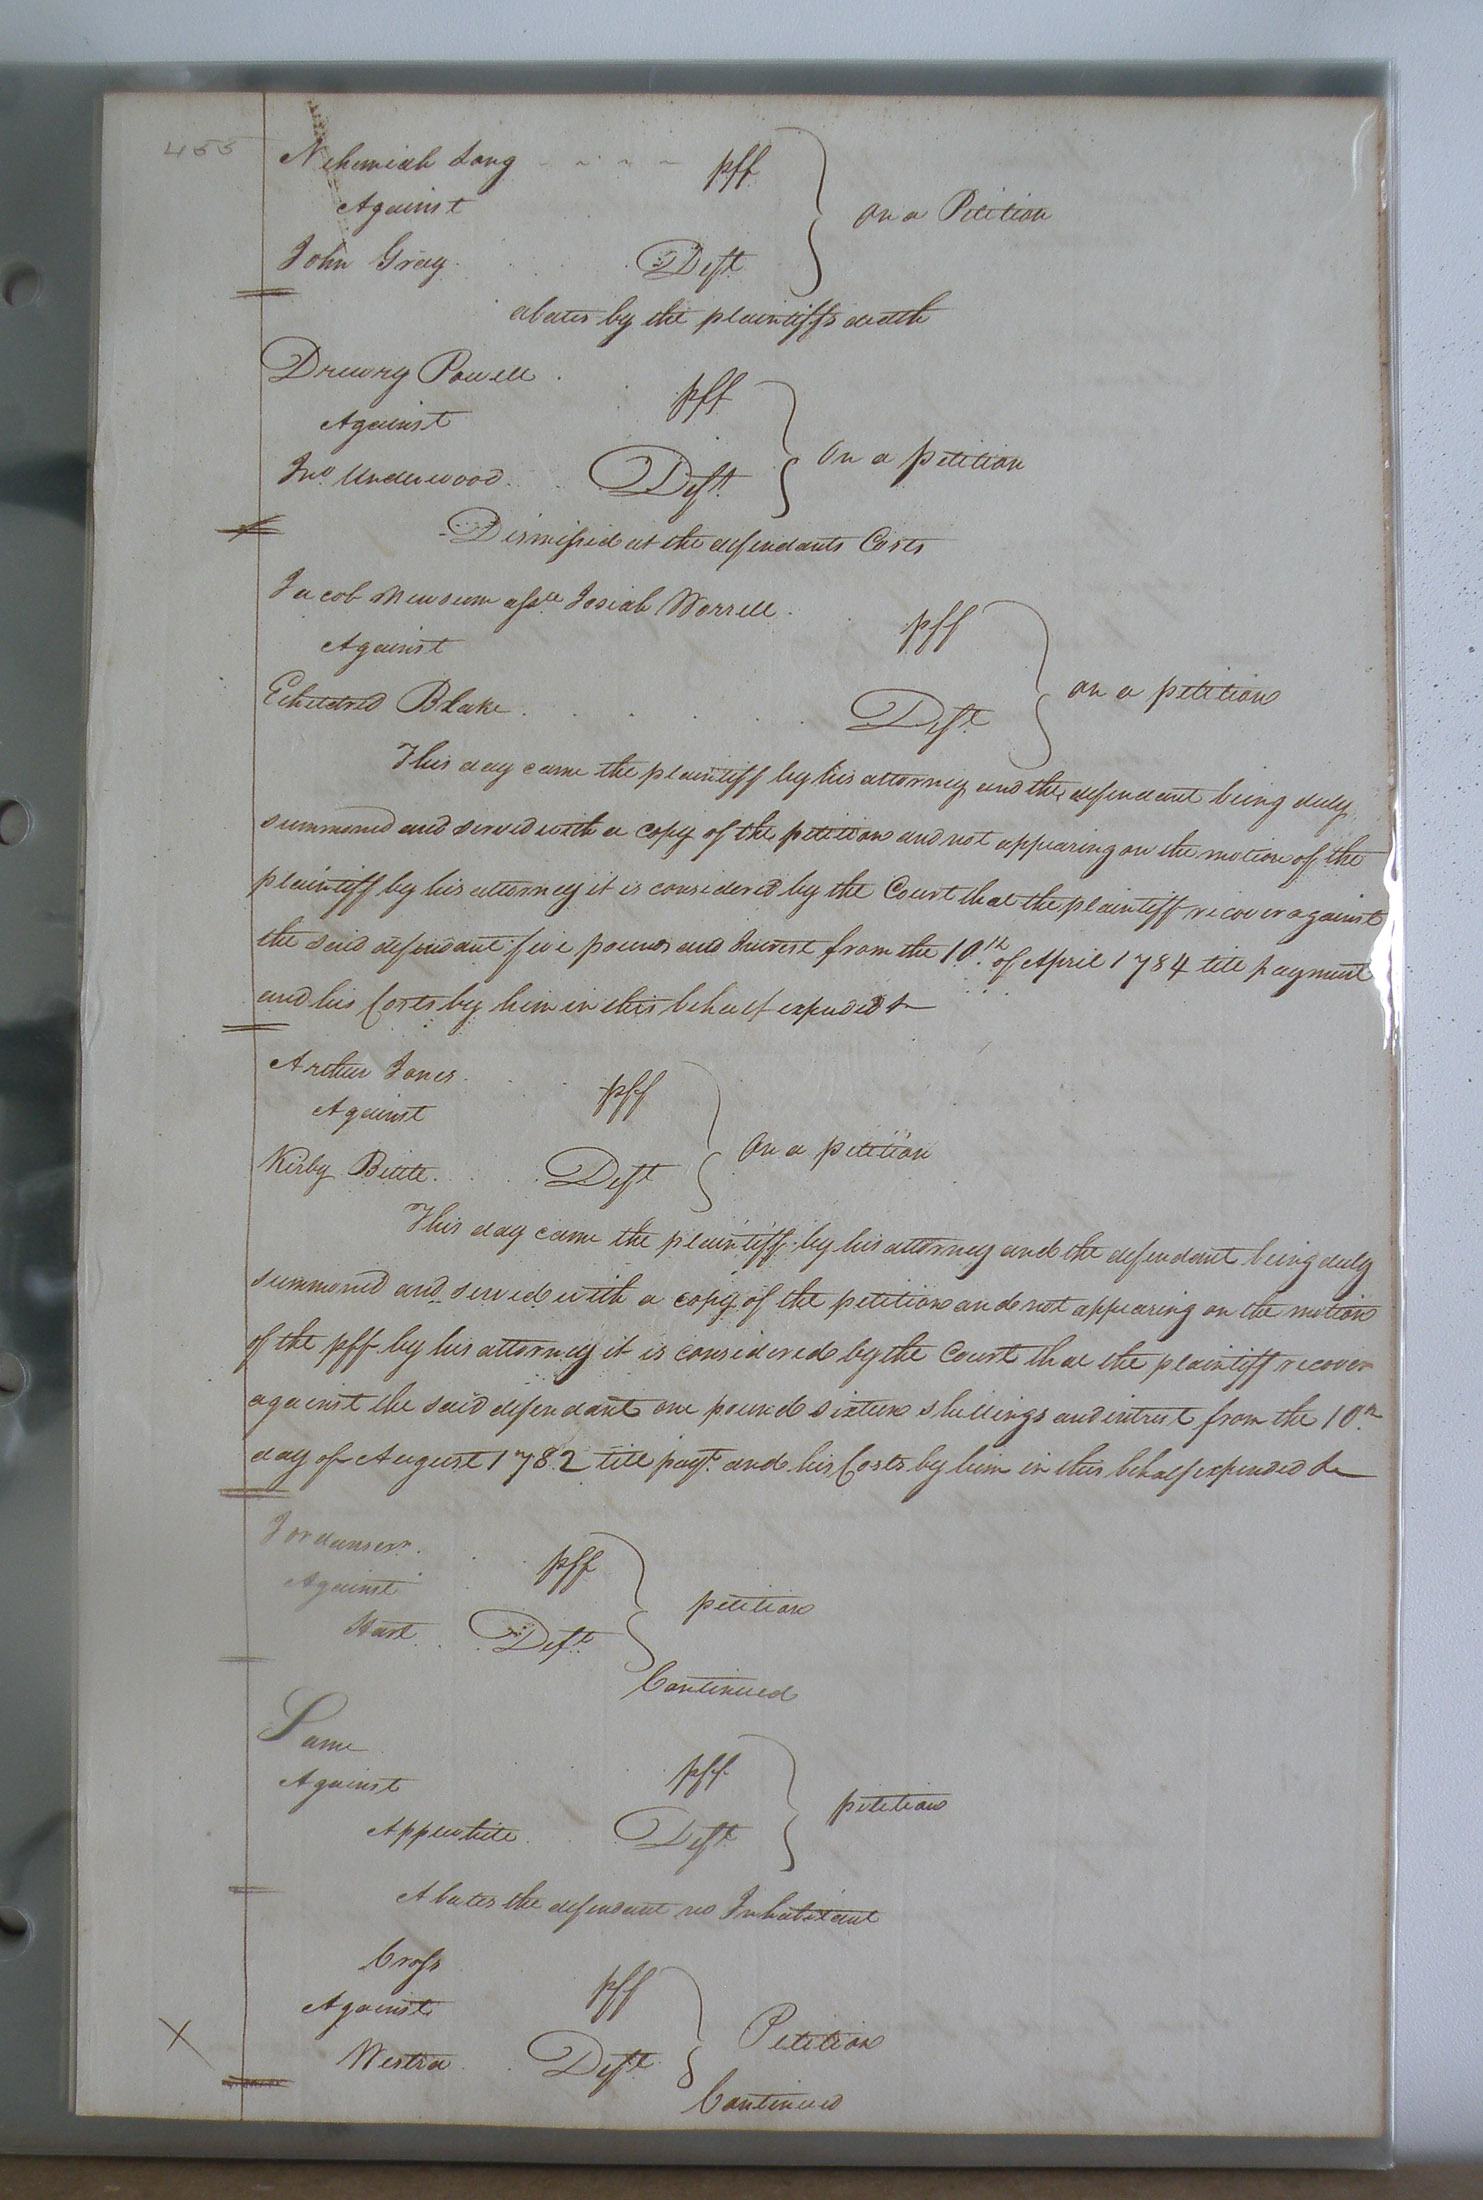 455
Nehemiah Long - - - - pff
Against
on a Petition
John Gray. Deft
abates by the plaintiffs death
Drewry Powell. pff
Against
On a petition
Jno. Underwood. Deft
Dismissed at the defendants Costs
Jacob Newsum assee Josiah Worrell. pff
Against
on a petition
Etheldred Blake. Deft
This day came the plaintiff by his attorney and the defendant being duly
summoned and served with a copy of the petition and not appearing on the motion of the
plaintiff by his attorney it is considered by the Court that the plaintiff recover against
the said defendant five pounds and Interest from the 10th of April 1784 till payment
and his Costs by him in this behalf expended &
Arthur Jones. pff
Against
On a petition
Kirby Bittle. Deft
This day came the plaintiff by his attorney and the defendant being duly
summoned and served with a copy of the petition and not appearing on the motion
of the pff by his attorney it is considered by the Court that the plaintiff recover
against the said defendant one pound sixteen shillings and intrest from the 10th
day of August 1782 till payt. and his Costs by him in this behalf expended &
pff
Against
petition
Hart. Deft
Continued
Same
pff
Against
petition
Applewhite. Deft
Abates the defendant no Inhabitant
Cross
pff
Against
Petition
X
Westra. Deft
Continued